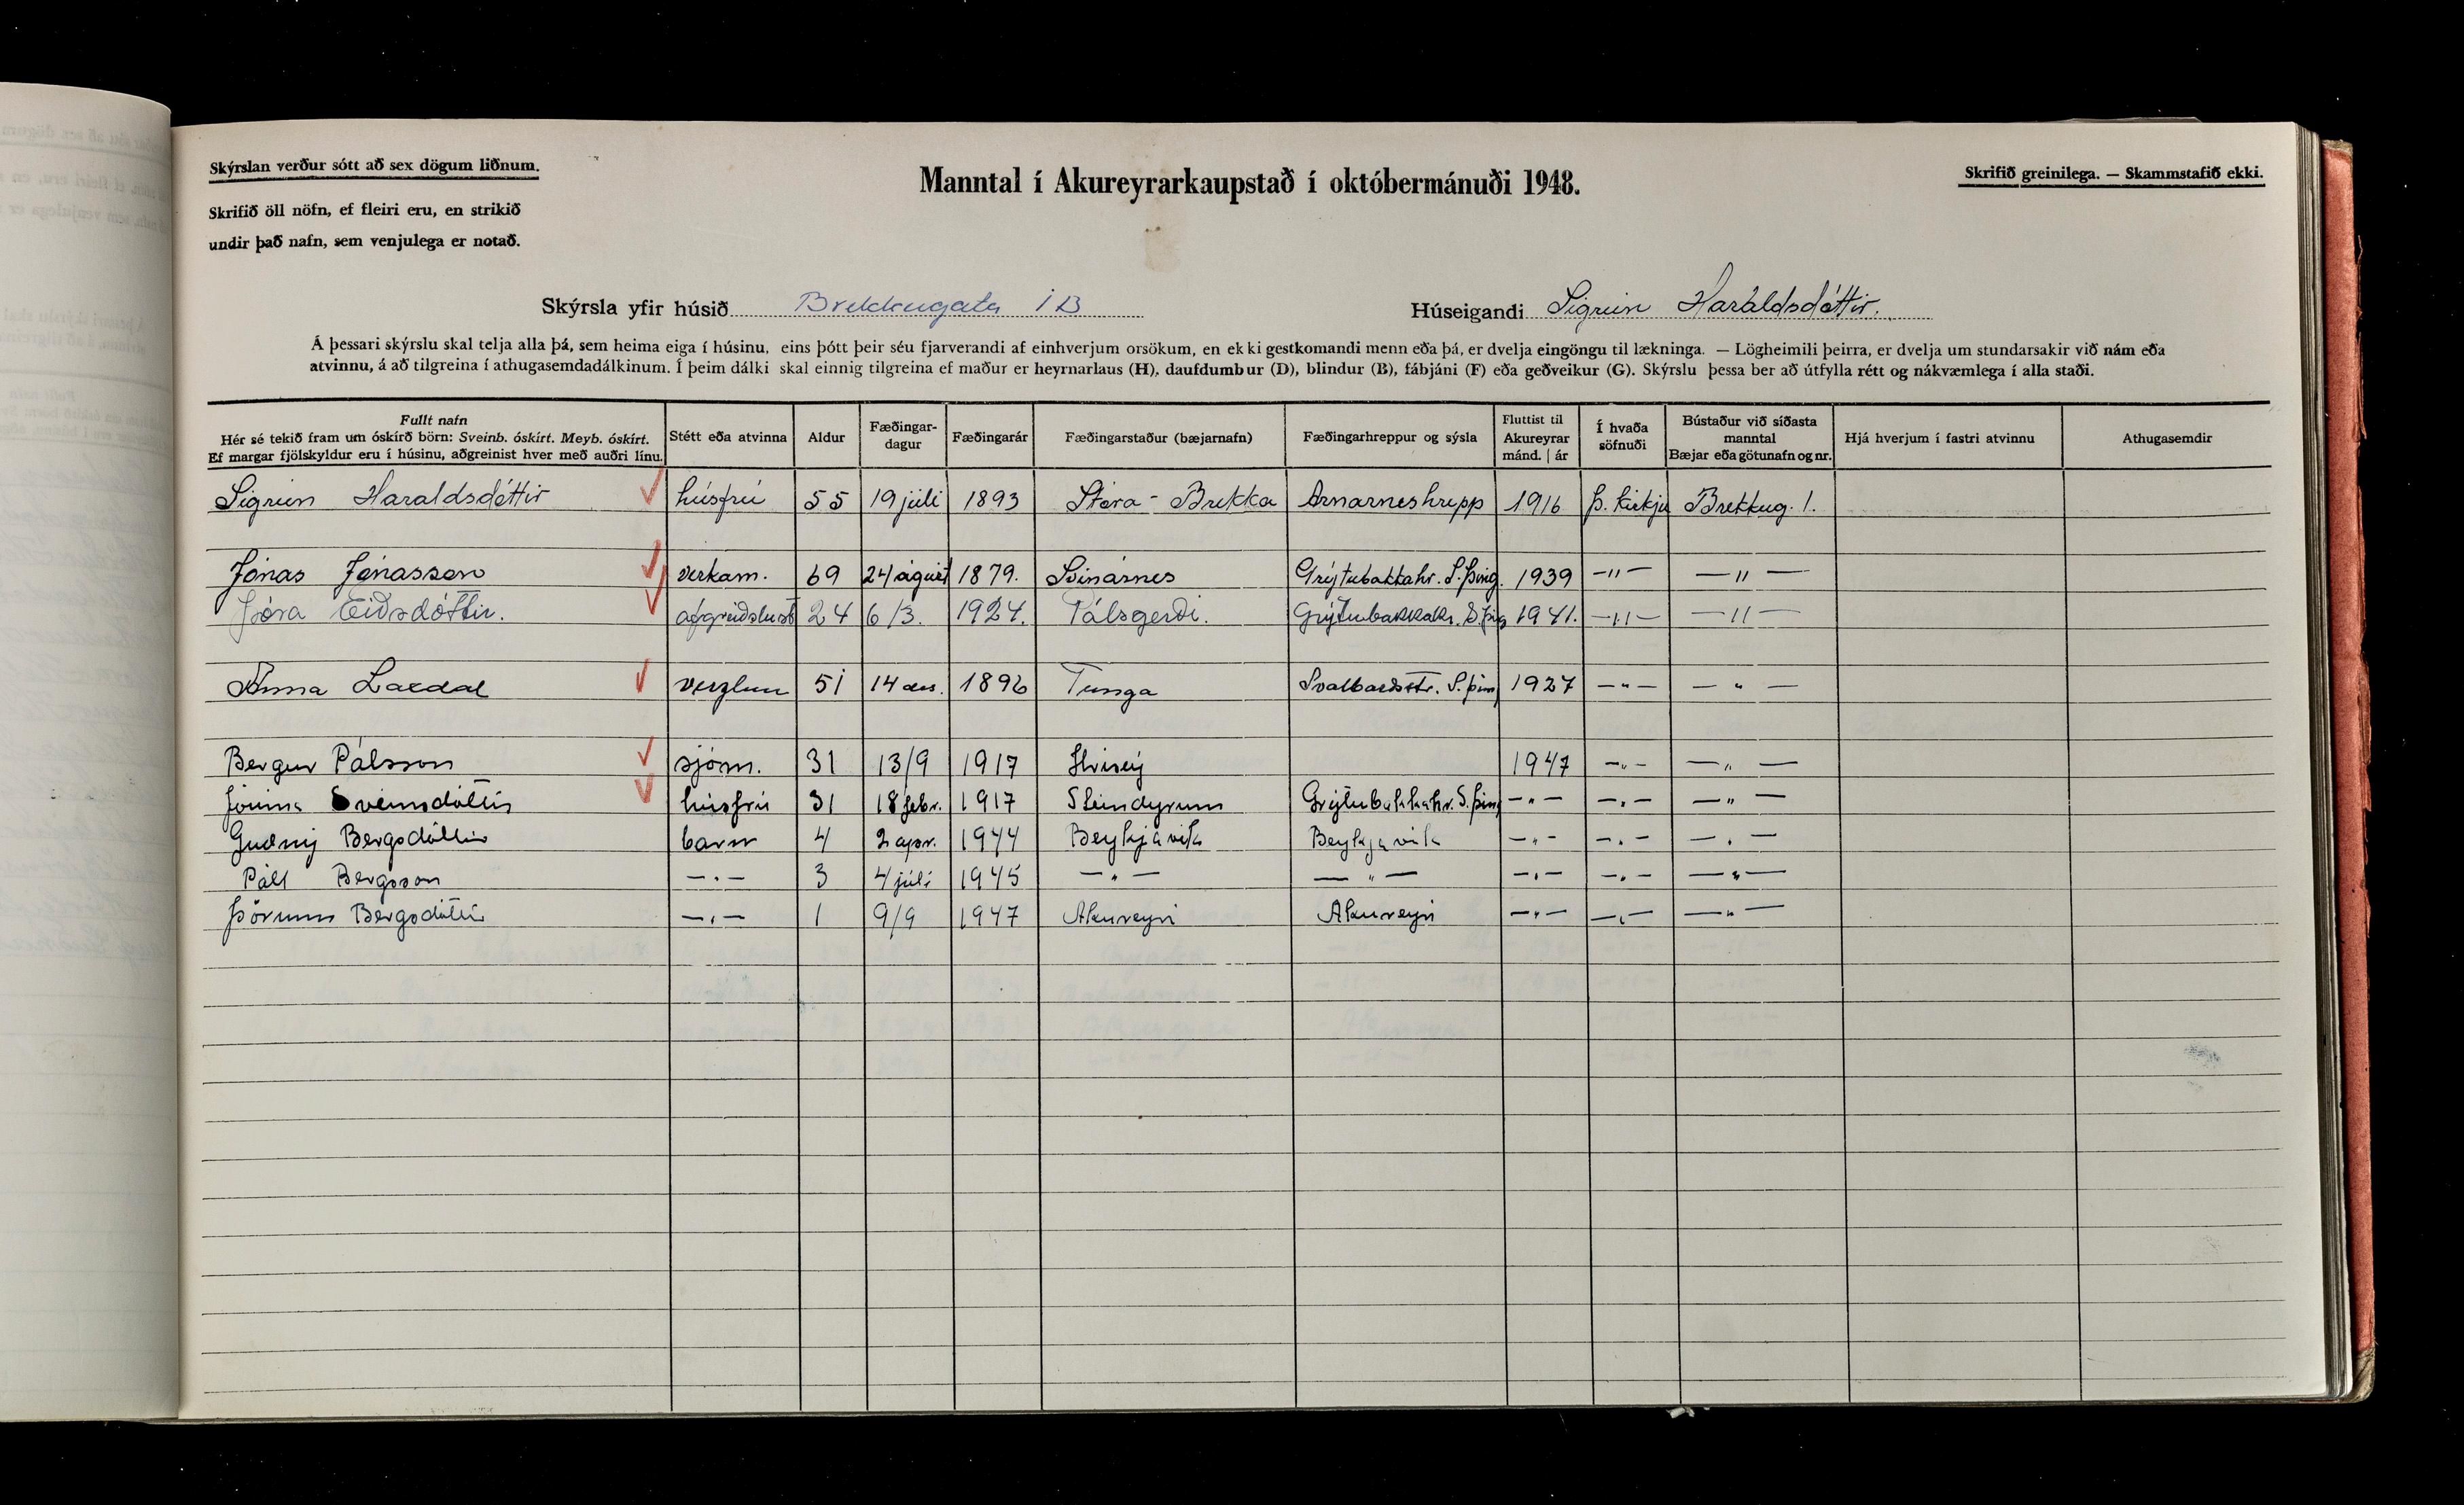 Skýrslan verður sótt að sex dögum liðnum.
Skrifið öll nöfn, ef fleiri eru, en strikið
undir það nafn, sem venjulega er notað.
Manntal í Akureyrarkaupstað í októbermánuði 1948.
Skrifið greinilega. — Skammstafið ekki.
Skýrsla yfir húsið Brekkugata 1B Húseigandi Sigrún Haraldsdóttir.
Á þessari skýrslu skal telja alla þá, sem heima eiga í húsinu, eins þótt þeir séu fjarverandi af einhverjum orsökum, en ekki gestkomandi menn eða þá, er dvelja eingöngu til lækninga. — Lögheimili þeirra, er dvelja um stundarsakir við nám eða
atvinnu, á að tilgreina í athugasemdadálkinum. Í þeim dálki skal einnig tilgreina ef maður er heyrnarlaus (H), daufdumbur (D), blindur (B), fábjáni (F) eða geðveikur (G). Skýrslu þessa ber að útfylla rétt og nákvæmlega í alla staði.
Fullt nafn
Hér sé tekið fram um óskírð börn: Sveinb. óskírt. Meyb. óskírt.
Ef margar fjölskyldur eru í húsinu, aðgreinist hver með auðri línu.
Stétt eða atvinna
Aldur
Fæðingar-
dagur
Fæðingarár
Fæðingarstaður (bæjarnafn)
Fæðingarhreppur og sýsla
Fluttist til
Akureyrar
mánd. | ár
Í hvaða
söfnuði
Bústaður við síðasta
manntal
Bæjar eða götunafn og nr.
Hjá hverjum í fastri atvinnu
Athugasemdir
Sigrún Haraldsdóttir húsfrú 55 19 júlí 1893 Stóra-Brekka Arnarneshrepp 1916 Þ. kirkju Brekkug. 1.
Jónas Jónasson verkam. 69 24 ágúst 1879. Svínárnes Grýtubakkahr. S. Þing. 1939 —"— —"—
Þóra Eiðsdóttir. afgreiðslust 24 6/3. 1924. Pálsgerði. Grýtubakkahr. S. Þing 1941. —"— —"—
Anna Laxdal verzlun 51 14 des. 1896 Tunga Svalbarðsstr. S. Þing 1927 —"— —"—
Bergur Pálsson sjóm. 31 13/9 1917 Hrísey 1947 —"— —"—
Jónína Sveinsdóttir húsfrú 31 18 febr. 1917 Steindyrum Grýtubakkahr. S. Þing —"— —"— —"—
Guðný Bergsdóttir barn 4 2 apr. 1944 Reykjavík Reykjavík —"— —"— —"—
Páll Bergsson —"— 3 4 júlí 1945 —"— —"— —"— —"— —"—
Þórunn Bergsdóttir —"— 1 9/9 1947 Akureyri Akureyri —"— —"— —"—